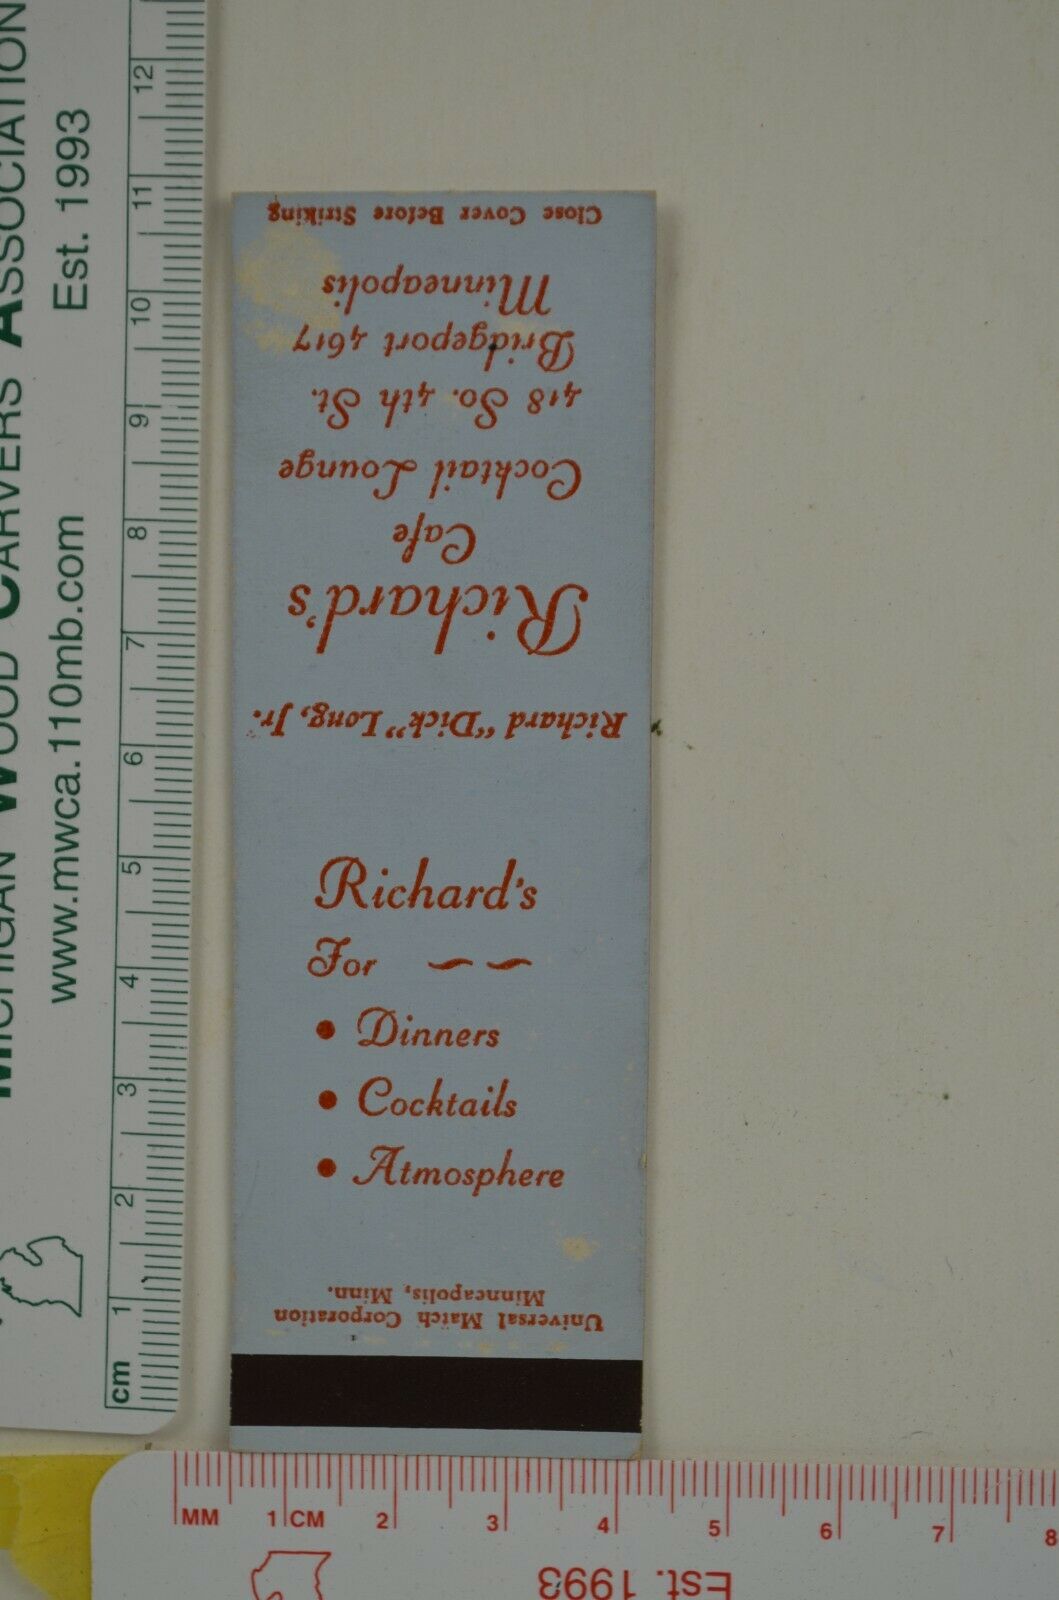 Close Cover Before Striking
Minneapolis
Bridgeport 4617
418 So. 4th St.
Cocktail Lounge
Cafe
Richard's
Richard "Dick" Long, Jr.
Richard's
For
• Dinners
• Cocktails
• Atmosphere
Universal Match Corporation
Minneapolis, Minn.
MICHIGAN WOOD CARVERS ASSOCIATION
www.mwca.110mb.com Est. 1993
cm 1 2 3 4 5 6 7 8 9 10 11 12
MM 1 CM 2 3 4 5 6 7 8
Est. 1993